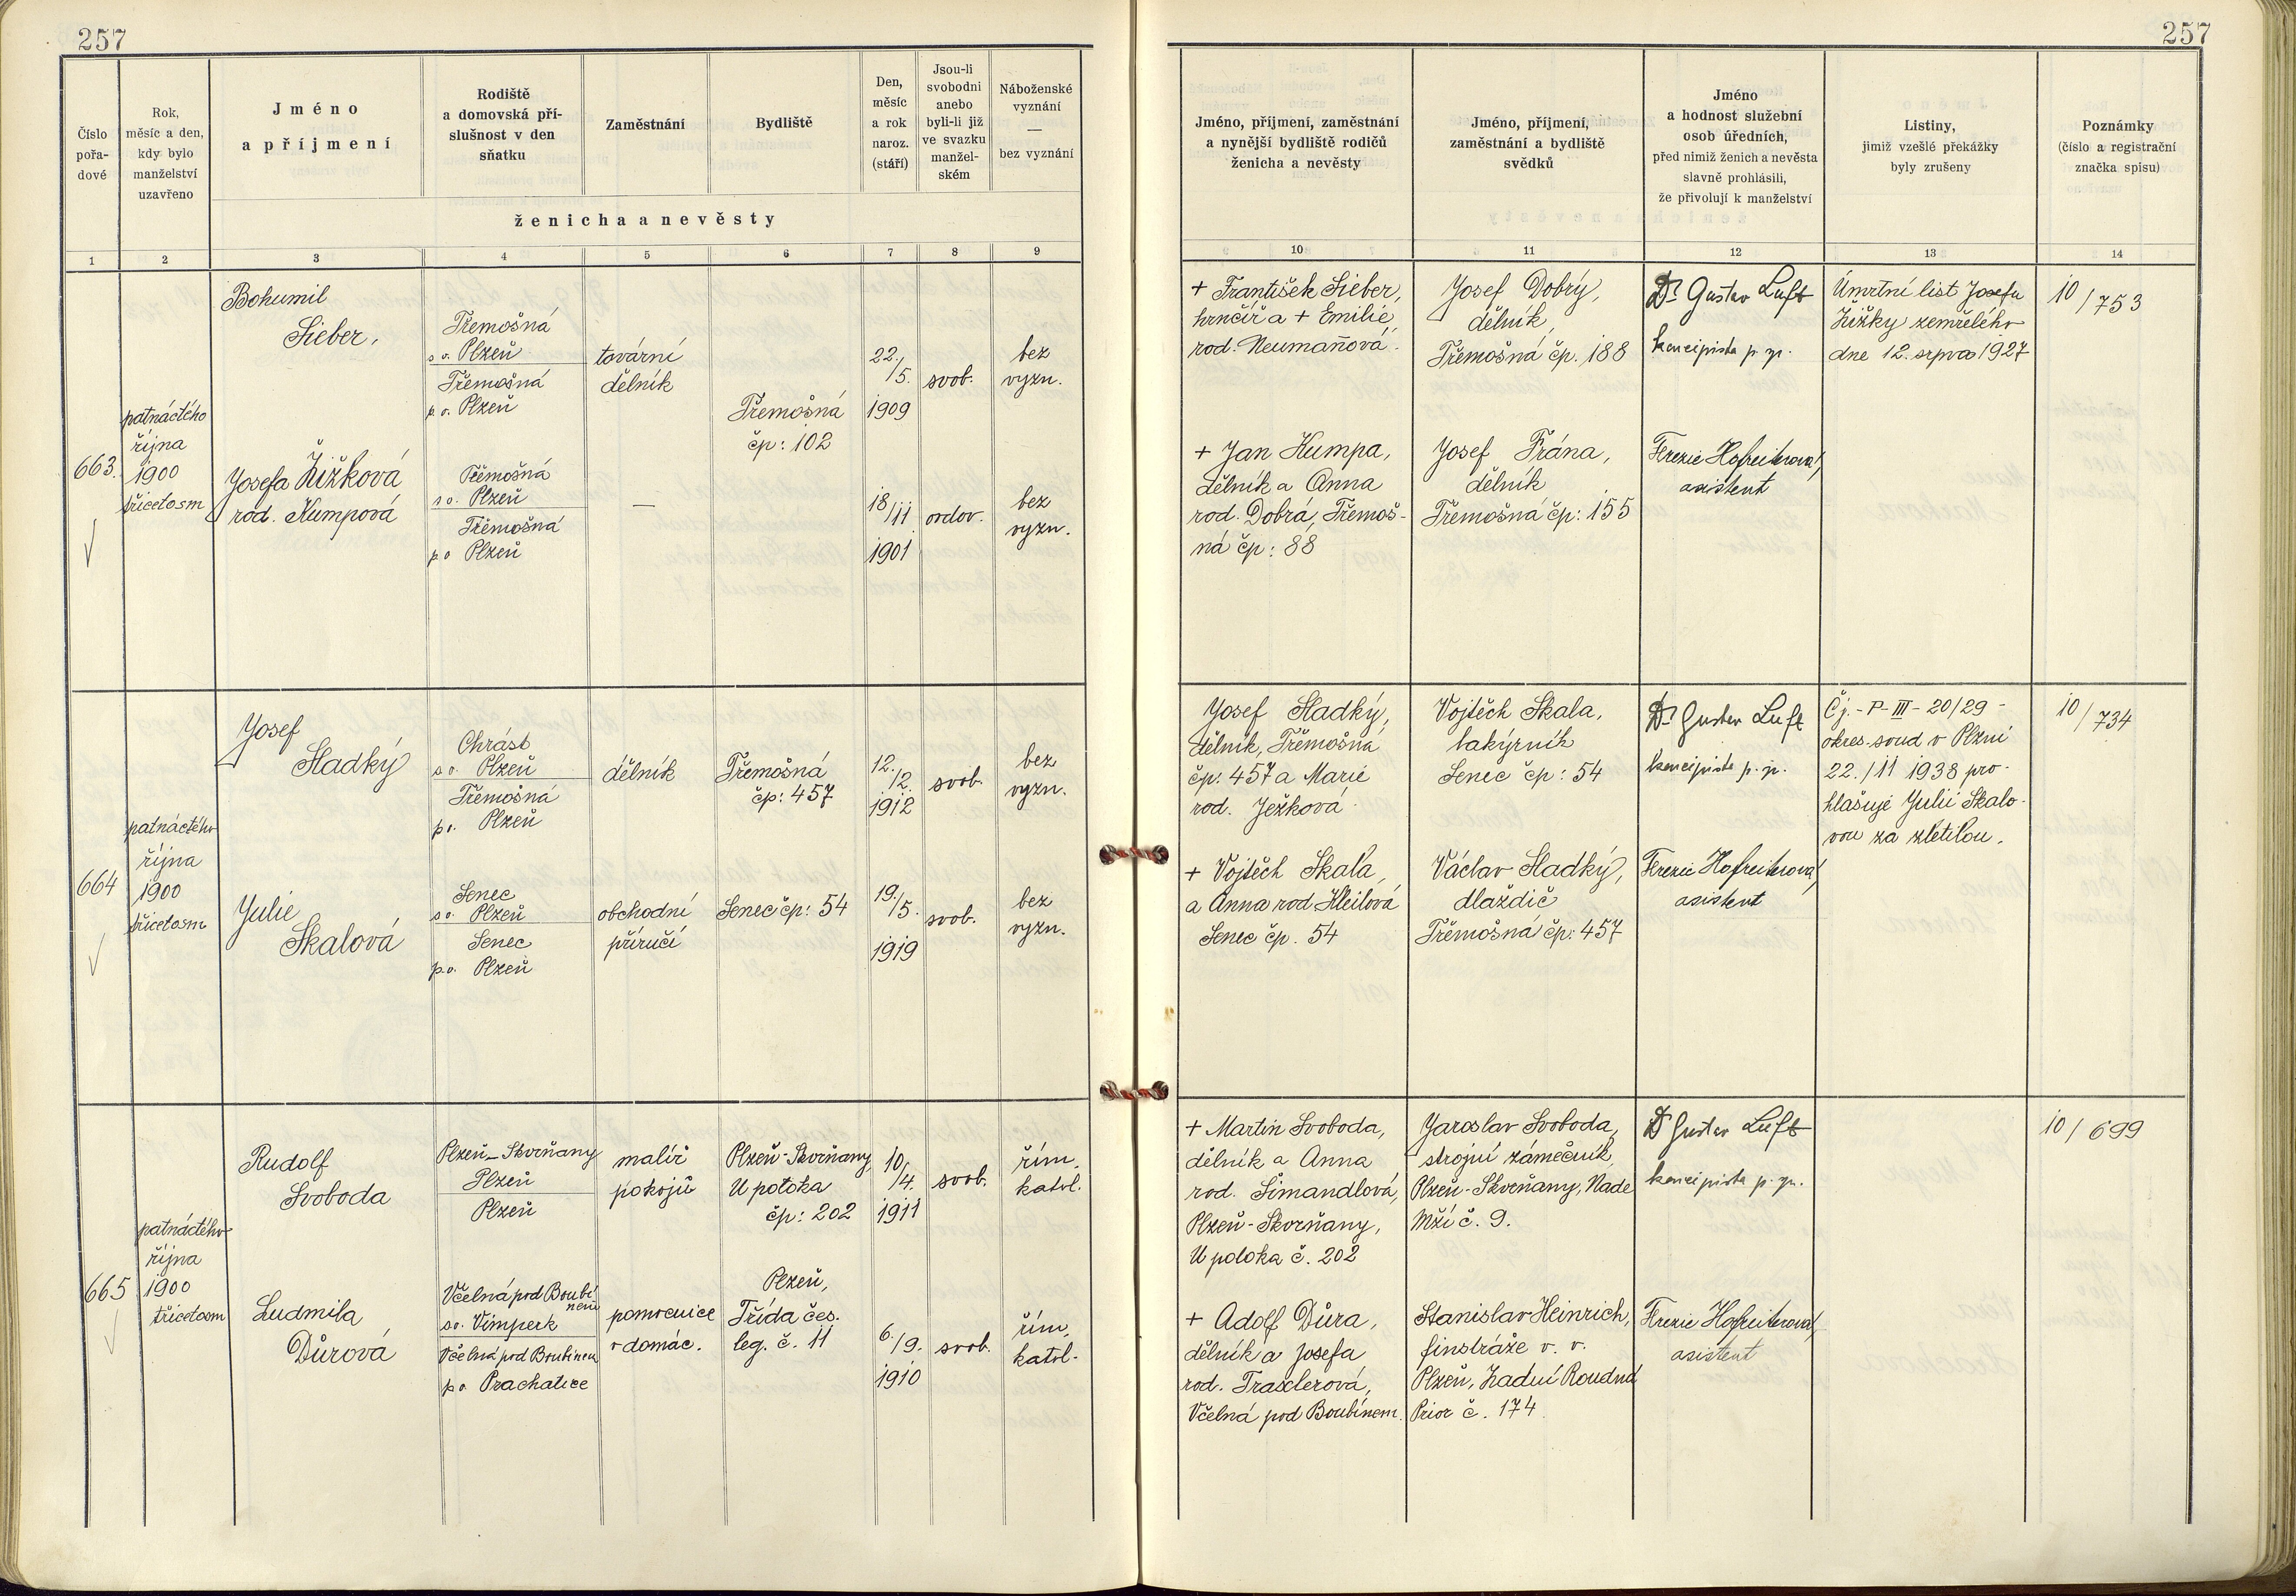 257
257
Číslo
pořa-
dové
Rok,
měsíc a den,
kdy bylo
manželství
uzavřeno
Jméno
a příjmení
Rodiště
a domovská pří-
slušnost v den
sňatku
Zaměstnání
Bydliště
Den,
měsíc
a rok
naroz.
(stáří)
Jsou-li
svobodni
anebo
byli-li již
ve svazku
manžel-
ském
Náboženské
vyznání
—
bez vyznání
ženicha a nevěsty
Jméno, příjmení, zaměstnání
a nynější bydliště rodičů
ženicha a nevěsty
Jméno, příjmení,
zaměstnání a bydliště
svědků
Jméno
a hodnost služební
osob úředních,
před nimiž ženich a nevěsta
slavně prohlásili,
že přivolují k manželství
Listiny,
jimiž vzešlé překážky
byly zrušeny
Poznámky
(číslo a registrační
značka spisu)
1 2 3 4 5 6 7 8 9 10 11 12 13 14
663.
patnáctého
října
1900
třicetosm
Bohumil
Sieber,
Třemošná
s o. Plzeň
Třemošná
p. o. Plzeň
tovární
dělník
Třemošná
čp: 102
22./
/5.
1909
svob.
bez
vyzn.
Josefa Žižková
rod. Kumpová
Třemošná
s o. Plzeň
Třemošná
p o Plzeň
—
18/11
1901
ovdov.
bez
vyzn.
+ František Sieber,
hrnčíř a + Emilie
rod. Neumanová.
+ Jan Kumpa,
dělník a Anna
rod. Dobrá, Třemoš-
ná čp: 88
Josef Dobrý,
dělník,
Třemošná čp. 188
Josef Frána,
dělník
Třemošná čp: 155
Dr Gustav Luft
koncipista p. zp.
Terezie Hofreiterová,
asistent
Úmrtní list Josefa
Žižky zemřelého
dne 12. srpna 1927
10/753
664
patnáctého
října
1900
třicetosm
Josef
Sladký
Chrást
s o. Plzeň
Třemošná
p o. Plzeň
dělník
Třemošná
čp: 457
12./
/12.
1912
svob.
bez
vyzn.
Julie
Skalová
Senec
s o. Plzeň
Senec
p.o. Plzeň
obchodní
příručí
Senec čp: 54
19./
/5.
1919
svob.
bez
vyzn.
Josef Sladký,
dělník, Třemošná
čp: 457 a Marie
rod. Ježková
+ Vojtěch Skala,
a Anna rod. Kleilová
Senec čp. 54
Vojtěch Skala,
lakýrník
Senec čp: 54
Václav Sladký,
dlaždič
Třemošná čp: 457
Dr Gustav Luft
koncipista p. zp.
Terezie Hofreiterová,
asistent
Čj. - P - III - 20/29 -
okres. soud v Plzni
22./11 1938 pro-
hlašuje Julii Skalo-
vou za zletilou.
10/734
665
patnáctého
října
1900
třicetosm
Rudolf
Svoboda
Plzeň-Skvrňany
Plzeň
Plzeň
malíř
pokojů
Plzeň-Skvrňany
U potoka
čp: 202
10/
/4.
1911
svob.
řím.
katol.
Ludmila
Důrová
Včelná pod Boubí-
nem
s o. Vimperk
Včelná pod Boubínem
p o Prachatice
pomocnice
v domác.
Plzeň,
Třída čes.
leg. č. 11
6./
/9.
1910
svob.
řím.
katol.
+ Martin Svoboda,
dělník a Anna
rod. Šimandlová,
Plzeň-Skvrňany,
U potoka č. 202
+ Adolf Důra,
dělník a Josefa
rod. Traxlerová,
Včelná pod Boubínem.
Jaroslav Svoboda,
strojní zámečník,
Plzeň-Skvrňany, Nade
Mží č. 9.
Stanislav Heinrich,
finstráže v. v.
Plzeň, Zadní Roudná
Prior č. 174
Dr Gustav Luft
koncipista p. zp.
Terezie Hofreiterová,
asistent
10/699